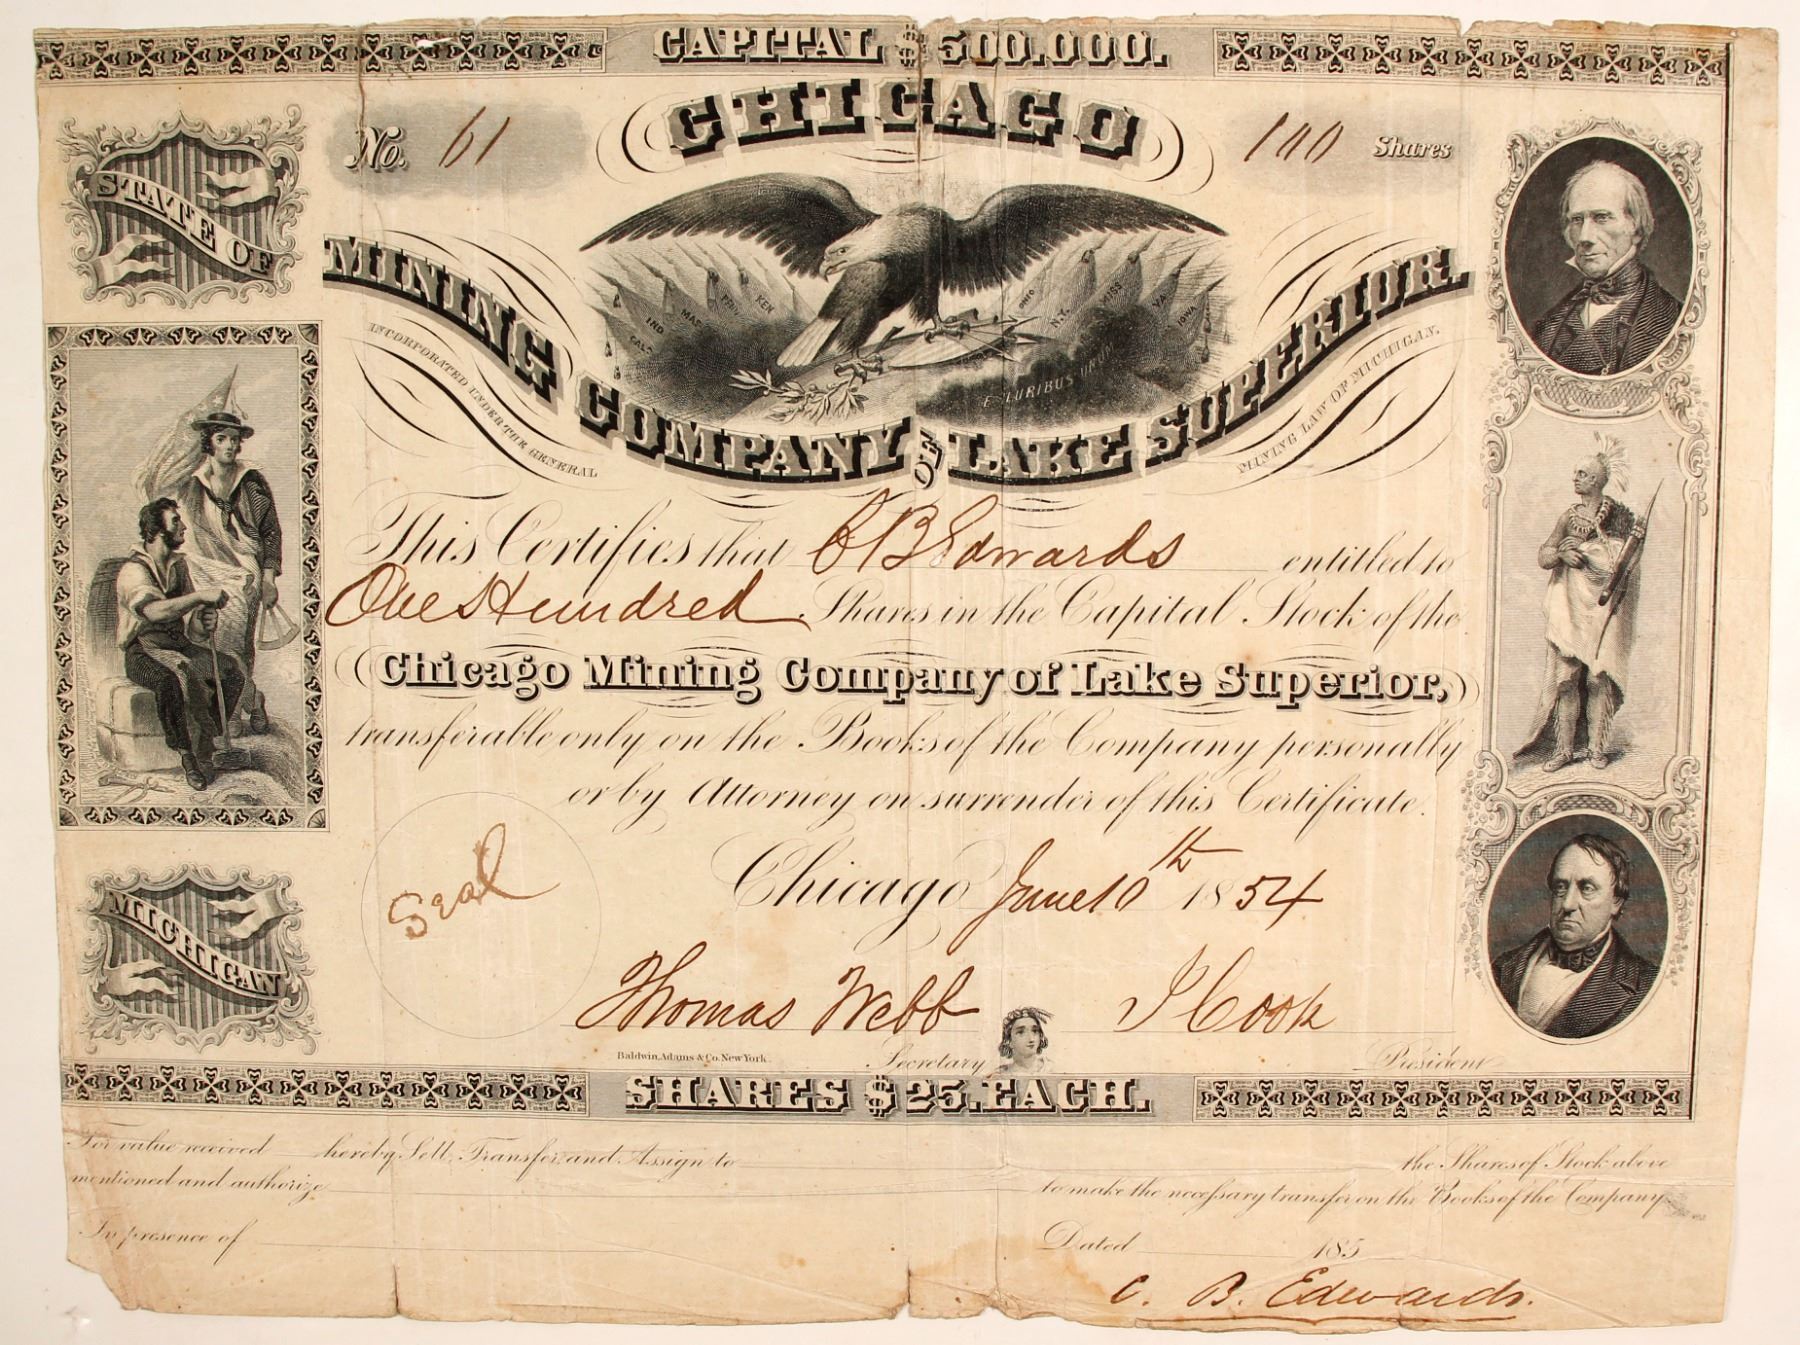 CAPITAL $500,000.
No. 61
CHICAGO
100 Shares
STATE OF
MINING COMPANY OF LAKE SUPERIOR.
INCORPORATED UNDER THE GENERAL
MINING LAW OF MICHIGAN.
CAL
IND
KEN
OHIO
N.Y.
MISS
VA
IOWA
E PLURIBUS UNUM
This Certifies that C B Edwards entitled to
One Hundred Shares in the Capital Stock of the
Chicago Mining Company of Lake Superior,
transferable only on the Books of the Company personally
or by Attorney on surrender of this Certificate.
Seal
Chicago June 10th 1854
MICHIGAN
Thomas Webb
Cook
Baldwin, Adams & Co. New York.
Secretary
President
SHARES $25. EACH.
For value received hereby Sell, Transfer and Assign to the Shares of Stock above
mentioned and authorize to make the necessary transfer on the Books of the Company
In presence of
Dated 185
C. B. Edwards.